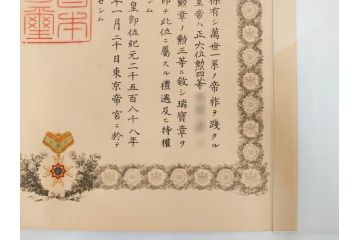 保有シ萬世一系ノ帝祚ヲ踐タル
皇帝ハ正六位勲四等
勲三等ニ敘シ瑞寶章ヲ
此位ニ屬スル禮遇及ヒ特權
セシム
皇即位紀元二千五百八十八年
年一月二十日東京帝宮ニ於テ
セシム
日本
璽